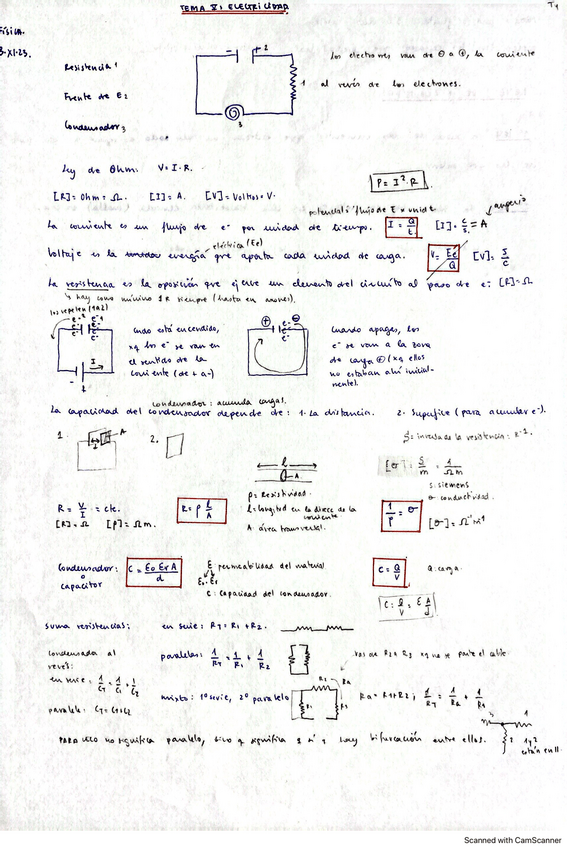 TEMA X: ELECTRICIDAD
T4
Física.
3-XI-23.
Resistencia 1
Frente de E 2
Condensador 3
- + 2
1
3
los electrones van de ⊖ a ⊕, la corriente
al revés de los electrones.
Ley de Ohm: V = I · R.
P = I² · R
[R] = Ohm = Ω. [I] = A. [V] = Voltios = V.
amperio
La corriente es un flujo de e⁻ por unidad de tiempo. I = Q/t. [I] = C/s = A
eléctrica (Ee)
Voltaje es la energía que aporta cada unidad de carga. V = Ee/Q [V] = J/C
La resistencia es la oposición que ejerce un elemento del circuito al paso de e⁻: [R] = Ω
↳ hay como mínimo 1 R siempre
los repelen (1 a 2)
Cuando está encendido,
xq los e⁻ se van en
el sentido de la
corriente (de + a -)
Cuando apagas, los
e⁻ se van a la zona
de carga ⊕ (xq ellos
no estaban ahí inicial-
mente).
condensador: acumula cargas.
La capacidad del condensador depende de: 1. La distancia. 2. Superficie (para acumular e⁻).
inversa de la resistencia: R⁻¹.
1. A
2.
l
A
[σ] = S/m = 1/Ωm
S: siemens
σ conductividad.
ρ = Resistividad.
l = longitud en la direcc de la
corriente
A: área transversal.
R = V/I = cte.
[R] = Ω [ρ] = Ωm.
R = ρ l/A
1/ρ = σ
[σ] = Ω⁻¹ m⁻¹
Condensador:
o
capacitor
C = E₀ Er A/d
E permeabilidad del material
E₀ · Er
C: capacidad del condensador.
C = Q/V
Q: carga.
C = Q/V = E A/d
Suma resistencias: en serie: RT = R1 + R2.
condensador al
revés:
en serie: 1/CT = 1/C1 + 1/C2
paralelo: CT = C1 + C2
paralelas: 1/RT = 1/R1 + 1/R2
xq no se parte el cable.
mixto: 1º serie, 2º paralelo
Ra = R1 + R2; 1/RT = 1/Ra + 1/R1
PARALELO no significa paralelo, sino q significa q hay bifurcación entre ellos.
1
2
1 y 2
están en II.
Scanned with CamScanner